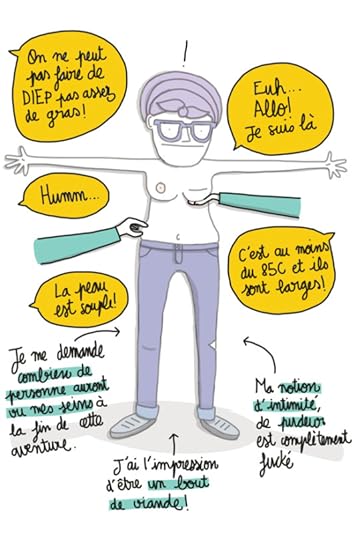 On ne peut
pas faire de
DIEP pas assez
de gras!
!
Euh...
Allo!
Je suis là
Humm...
C'est au moins
du 85C et ils
sont larges!
La peau
est souple!
Je me demande
combien de
personne auront
vu mes seins à
la fin de cette
aventure.
Ma notion
d'intimité,
de pudeur
est complètement
fucké
J'ai l'impression
d'être un bout
de viande!